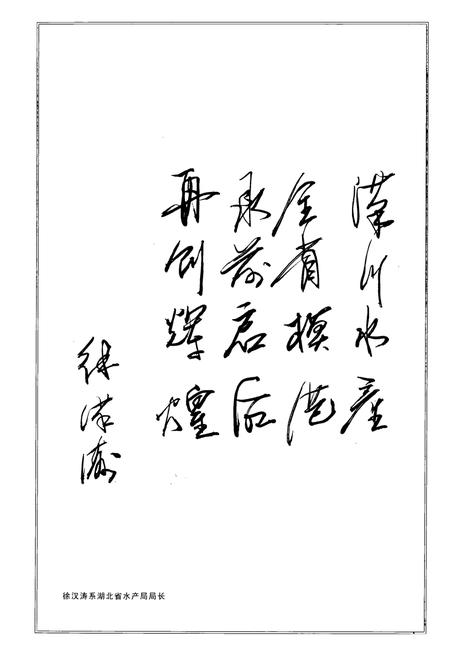 漢川水産
全省模范
承前启后
再创辉煌
徐漢涛
徐汉涛系湖北省水产局局长